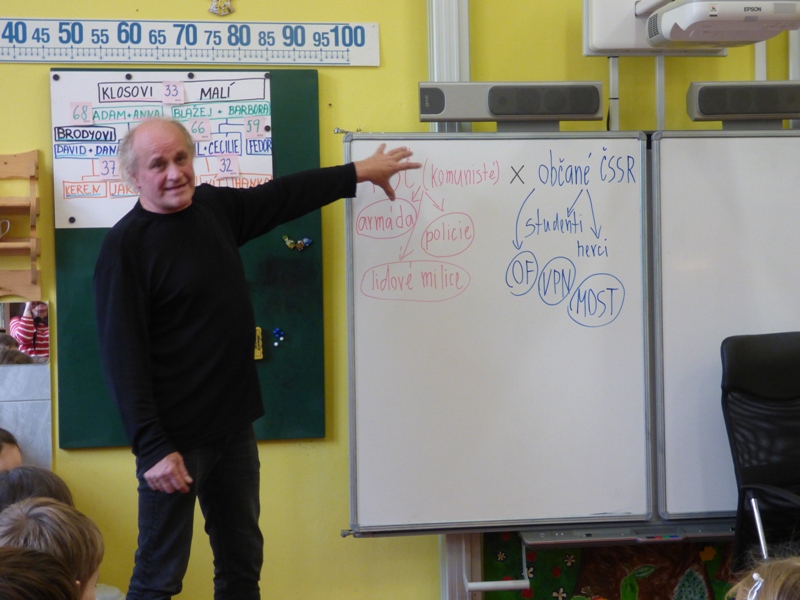 40 45 50 55 60 65 70 75 80 85 90 95 100
KLOSOVI 33 MALÍ
68 ADAM + ANNA BLAŽEJ + BARBORA
BRODYOVI 66 59
DAVID + DANA L + CECILIE FEDOR
37 32
KEREN JAK VÍT HANKA
(komunisté) X občané ČSSR
armáda policie studenti
herci
lidové milice OF VPN MOST
EPSON